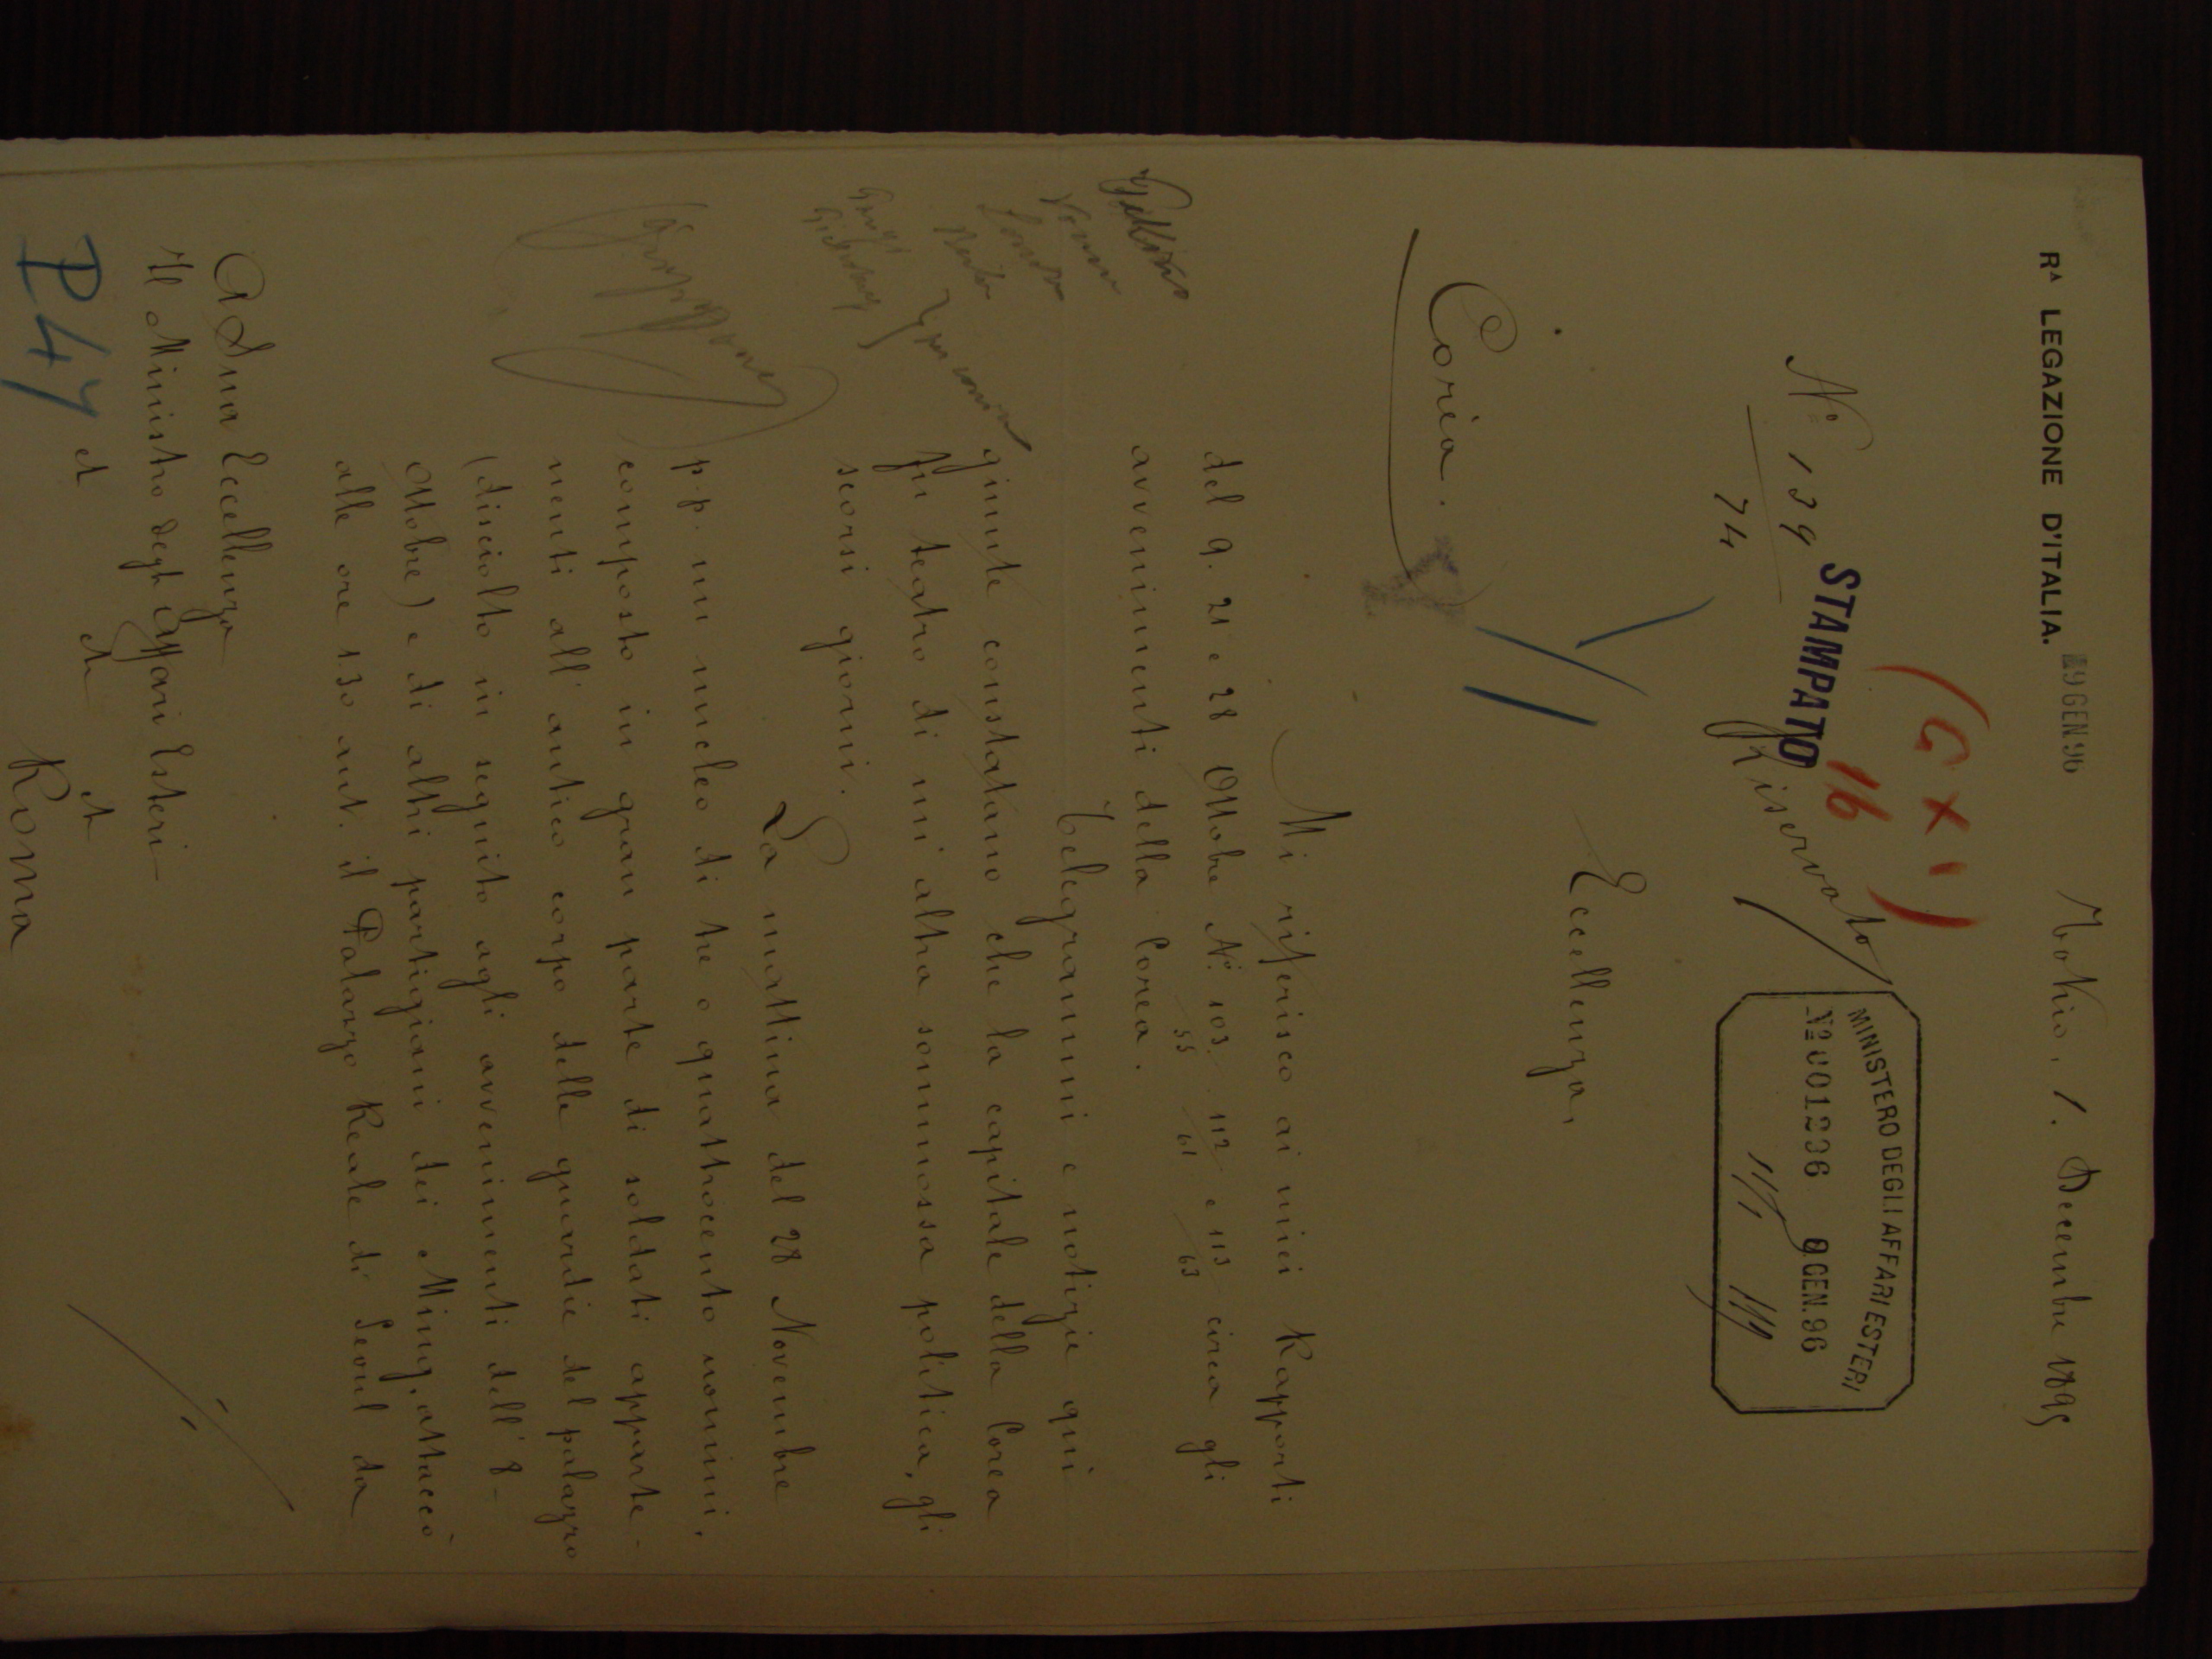 RA LEGAZIONE D'ITALIA.
19 GEN 96
Tokio, 1. Decembre 1895
(G X 1)
16
N° 139
74
STAMPATO
Riservato
MINISTERO DEGLI AFFARI ESTERI
No 001236 9 GEN. 96
Eccellenza,
Corea.
Mi riferisco ai miei Rapporti
del 9. 21 e 28 Ottobre N° 103. 112 e 113 circa gli
55 61 63
avvenimenti della Corea.
Telegrammi e notizie qui
giunte constatano che la capitale della Corea
fu teatro di un'altra sommossa politica, gli
scorsi giorni.
La mattina del 28 Novembre
p.p. un nucleo di tre o quattrocento uomini,
composto in gran parte di soldati apparte-
nenti all'antico corpo delle guardie del palazzo
(disciolto in seguito agli avvenimenti dell'8
Ottobre) e di altri partigiani dei Ming, attaccò
alle ore 1.30 ant. il Palazzo Reale di Seoul da
Pekino
Vienna
Londra
Berlino
Parigi
Pietroburgo
A Sua Eccellenza
Il Ministro degli Affari Esteri
et et et
Roma
P47